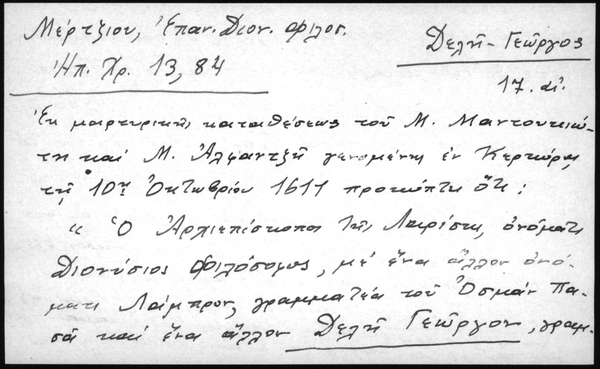 Μέρτζιου, Ἐπαν. Διον. φιλοσ.
Δελῆ-Γεῶργος
Ἠπ. Χρ. 13, 84
17. αἰ.
Ἐκ μαρτυρικῆς καταθέσεως τοῦ Μ. Μαντουκιώ-
τη καὶ Μ. Ἀλφαντζῆ γενομένης ἐν Κερκύρᾳ
τῇ 10ῃ Ὀκτωβρίου 1611 προκύπτει ὅτι:
« Ὁ Ἀρχιεπίσκοπος τῆς Λαρίσης, ὀνόματι
Διονύσιος Φιλόσοφος, μέ ἕνα ἄλλον ὀνό-
ματι Λάμπρον, γραμματέα τοῦ Ὀσμάν Πα-
σᾶ καί ἕνα ἄλλον Δελῆ Γεῶργον, γραμ-